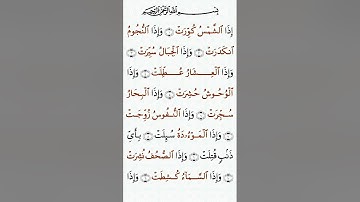 بِسْمِ ٱللَّهِ ٱلرَّحْمَٰنِ ٱلرَّحِيمِ
إِذَا ٱلشَّمْسُ كُوِّرَتْ ١ وَإِذَا ٱلنُّجُومُ
ٱنكَدَرَتْ ٢ وَإِذَا ٱلْجِبَالُ سُيِّرَتْ ٣
وَإِذَا ٱلْعِشَارُ عُطِّلَتْ ٤ وَإِذَا
ٱلْوُحُوشُ حُشِرَتْ ٥ وَإِذَا ٱلْبِحَارُ
سُجِّرَتْ ٦ وَإِذَا ٱلنُّفُوسُ زُوِّجَتْ
٧ وَإِذَا ٱلْمَوْءُۥدَةُ سُئِلَتْ ٨ بِأَيِّ
ذَنۢبٍ قُتِلَتْ ٩ وَإِذَا ٱلصُّحُفُ نُشِرَتْ
١٠ وَإِذَا ٱلسَّمَآءُ كُشِطَتْ ١١ وَإِذَا